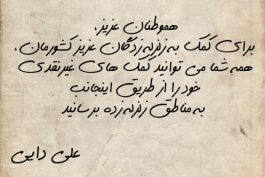 هموطنان عزیز،
برای کمک به زلزله‌زدگان عزیز کشورمان،
همه شما می توانید کمک های غیرنقدی
خود را از طریق اینجانب
به مناطق زلزله‌زده برسانید
علی دایی